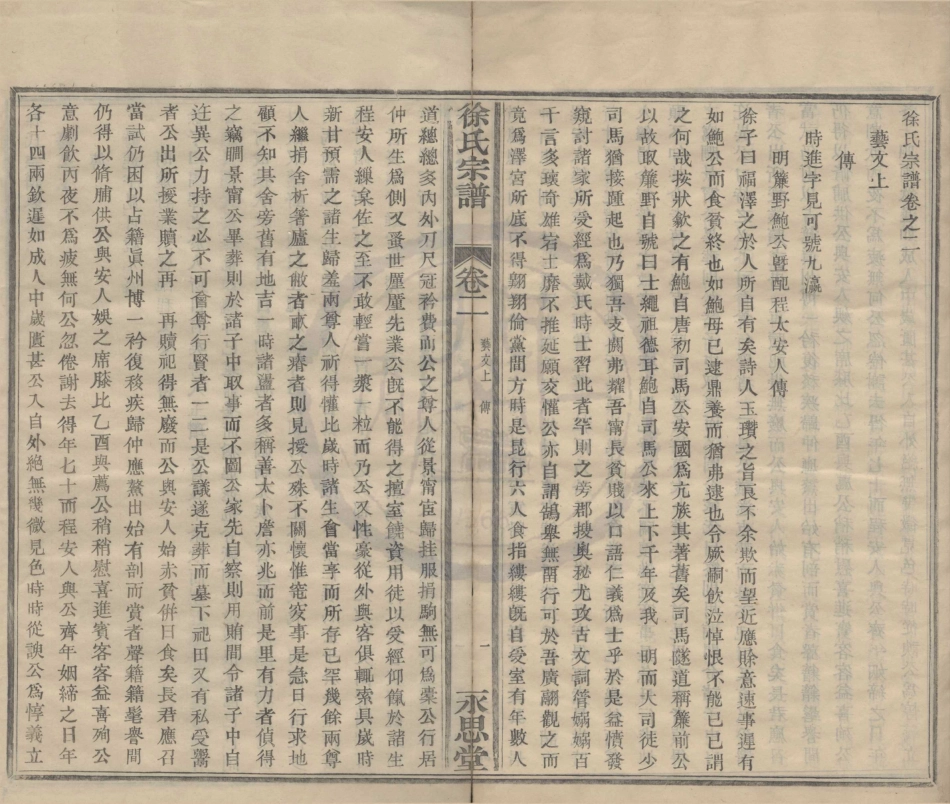 徐氏宗譜卷之二
藝文上
傳
時進字見可號九瀛
明簾野鮑公暨配程太安人傳
徐子曰福澤之於人所自有矣詩人玉瓚之旨良不余欺而望近應賒意速事遲有
如鮑公而食貧終也如鮑母已逮鼎養而猶弗逮也令厥嗣飲泣悼恨不能已已謂
之何哉按狀歙之有鮑自唐初司馬公安國為亢族其著舊矣司馬隧道稱簾前公
以故取簾野自號曰士繩祖德耳鮑自司馬公來上下千年及我 明而大司徒少
司馬猶接踵起也乃獨吾支闕弗耀吾甯長貧賤以口語仁義為士乎於是益憤發
窺討諸家所受經為戴氏時士習此者罕則之旁郡搜奧秘尤攻古文詞管娲娲百
千言多瓌奇雄宕士靡不推延願交懽公亦自謂鵠舉無難行可於吾廣翮觀之而
竟為澤宮所厎不得翺翔倫黨間方時是昆行六人食指縷縷既自受室有年數人
徐氏宗譜 卷二 藝文上 傳 一 永思堂
道總總亥內外刀尺冠衿費而公之尊人從景甯宦歸挂服捐駒無可為橐公行居
仲所生為側又蚤世壓先業公既不能得之擅室饒資用徒以受經仰餼於諸生
程安人緥枲佐之至不敢輕嘗一漿一粒而乃公又性豪從外與客俱輒索具歲時
新甘預需之諸生歸羞兩尊人祈得懽比歲時諸生會當享而所存已罕幾餘兩尊
人繼捐舍析箸廬之敝者畝之瘠者則見授公殊不關懷惟窀穸事是急日行求地
顧不知其舍旁舊有地吉一時諸譿者多稱善太卜譍亦兆而前是里有力者偵得
之竊瞯景甯公畢葬則於諸子中取事而不圖公家先自察則用賄間令諸子中自
迋異公力持之必不可會尊行賢者一二是公議遂克葬而墓下祀田又有私受鬻
者公出所授業贖之再 再贖祀得無廢而公與安人始赤貧併日食矣長君應召
當試仍困以占籍眞州博一衿復移疾歸仲應鰲出始有剖而賞者聲籍籍髦譽間
仍得以脩脯供公與安人娛之席藤比乙酉與薦公稍稍慰喜進賓客客益喜殉公
意劇飲丙夜不為疲無何公忽倦謝去得年七十而程安人與公齊年姻締之日年
各十四兩欽遲如成人中歲匱甚公入自外絕無幾微見色時時從諛公為惇義立